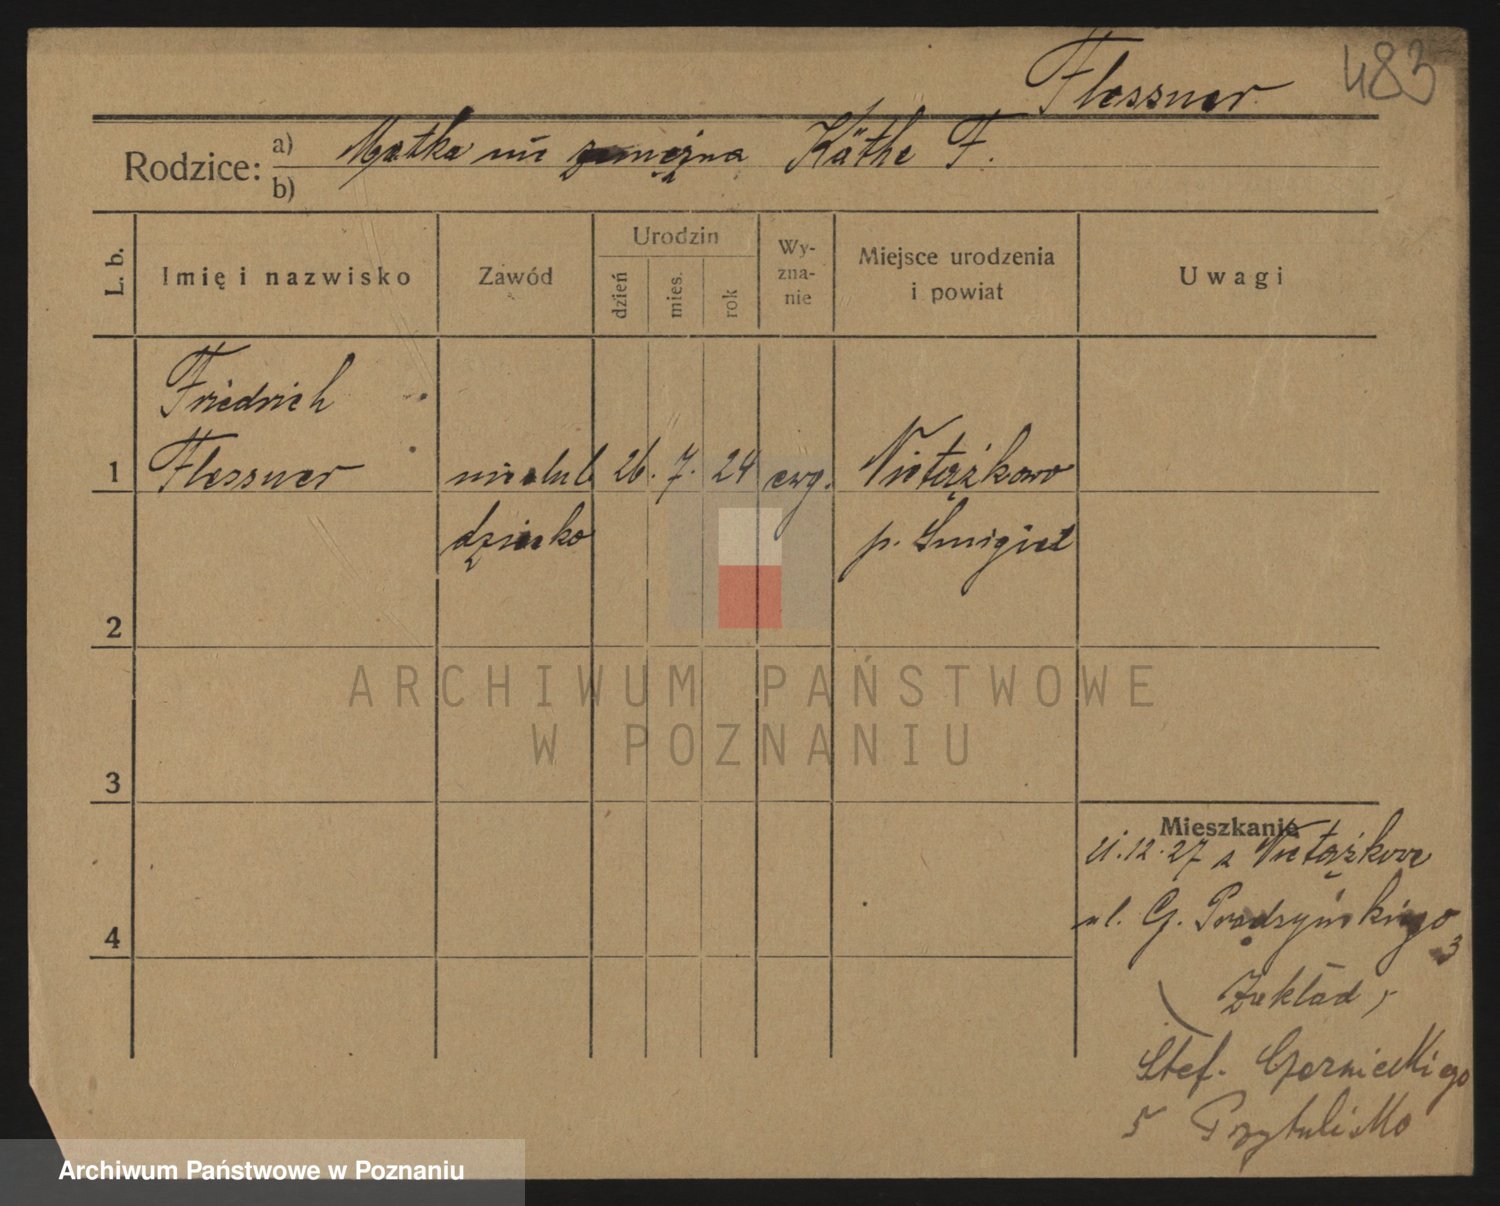 Flessner
483
Rodzice:
a) Matka nie zamężna Käthe F.
b)
L. b.
Imię i nazwisko
Zawód
Urodzin
dzień
mies.
rok
Wy-
zna-
nie
Miejsce urodzenia
i powiat
Uwagi
1
Friedrich
Flessner
nieślub
dziecko
26. 7. 24
ewg.
Nietążkowo
p. Śmigiel
2
3
4
ARCHIWUM PAŃSTWOWE
W POZNANIU
Mieszkanie
21.12.27 z Nietążkowo
ul. G. Prądzyńskiego
3
Zakład
Stef. Czarnieckiego
5 Przytulisko
Archiwum Państwowe w Poznaniu